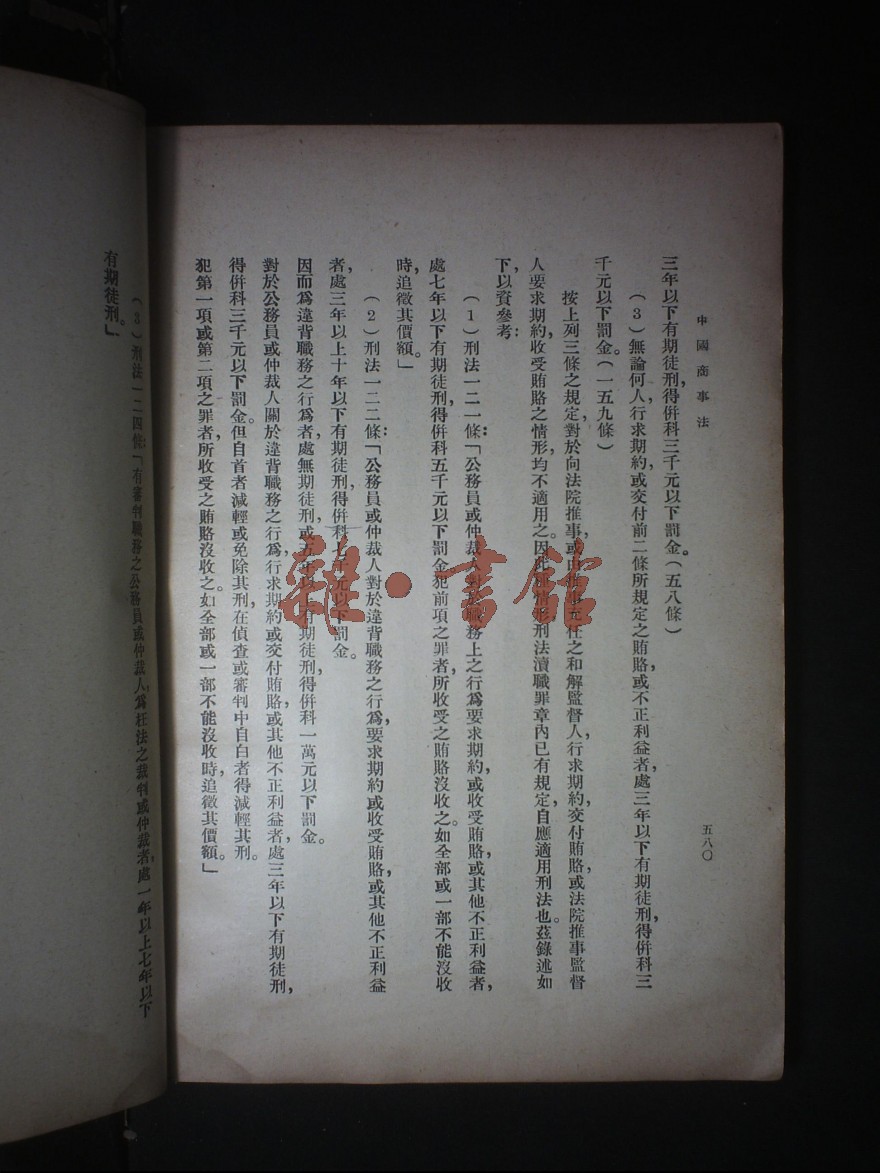 中國商事法
五八〇
三年以下有期徒刑，得併科三千元以下罰金。（五八條）
（3）無論何人行求期約，或交付前二條所規定之賄賂，或不正利益者，處三年以下有期徒刑，得併科三
千元以下罰金。（一五九條）
按上列三條之規定，對於向法院推事，或由推事充任之和解監督人，行求期約，交付賄賂，或法院推事監督
人要求期約，收受賄賂之情形，均不適用之。因此種情形，刑法瀆職罪章內已有規定，自應適用刑法也。茲錄述如
下，以資參考：
（1）刑法一二一條：「公務員或仲裁人對於職務上之行爲，要求期約，或收受賄賂，或其他不正利益者，
處七年以下有期徒刑，得併科五千元以下罰金犯前項之罪者，所收受之賄賂沒收之。如全部或一部不能沒收
時，追徵其價額。」
（2）刑法一二二條：「公務員或仲裁人對於違背職務之行爲，要求期約或收受賄賂，或其他不正利益
者，處三年以上十年以下有期徒刑，得併科七千元以下罰金。
因而爲違背職務之行爲者，處無期徒刑，或五年以上有期徒刑，得併科一萬元以下罰金。
對於公務員或仲裁人關於違背職務之行爲，行求期約或交付賄賂，或其他不正利益者，處三年以下有期徒刑，
得併科三千元以下罰金。但自首者減輕或免除其刑。在偵查或審判中自白者得減輕其刑。
犯第一項或第二項之罪者，所收受之賄賂沒收之。如全部或一部不能沒收時，追徵其價額。」
（3）刑法一二四條：「有審判職務之公務員或仲裁人，爲枉法之裁判或仲裁者，處一年以上七年以下
有期徒刑。」
雜·書館